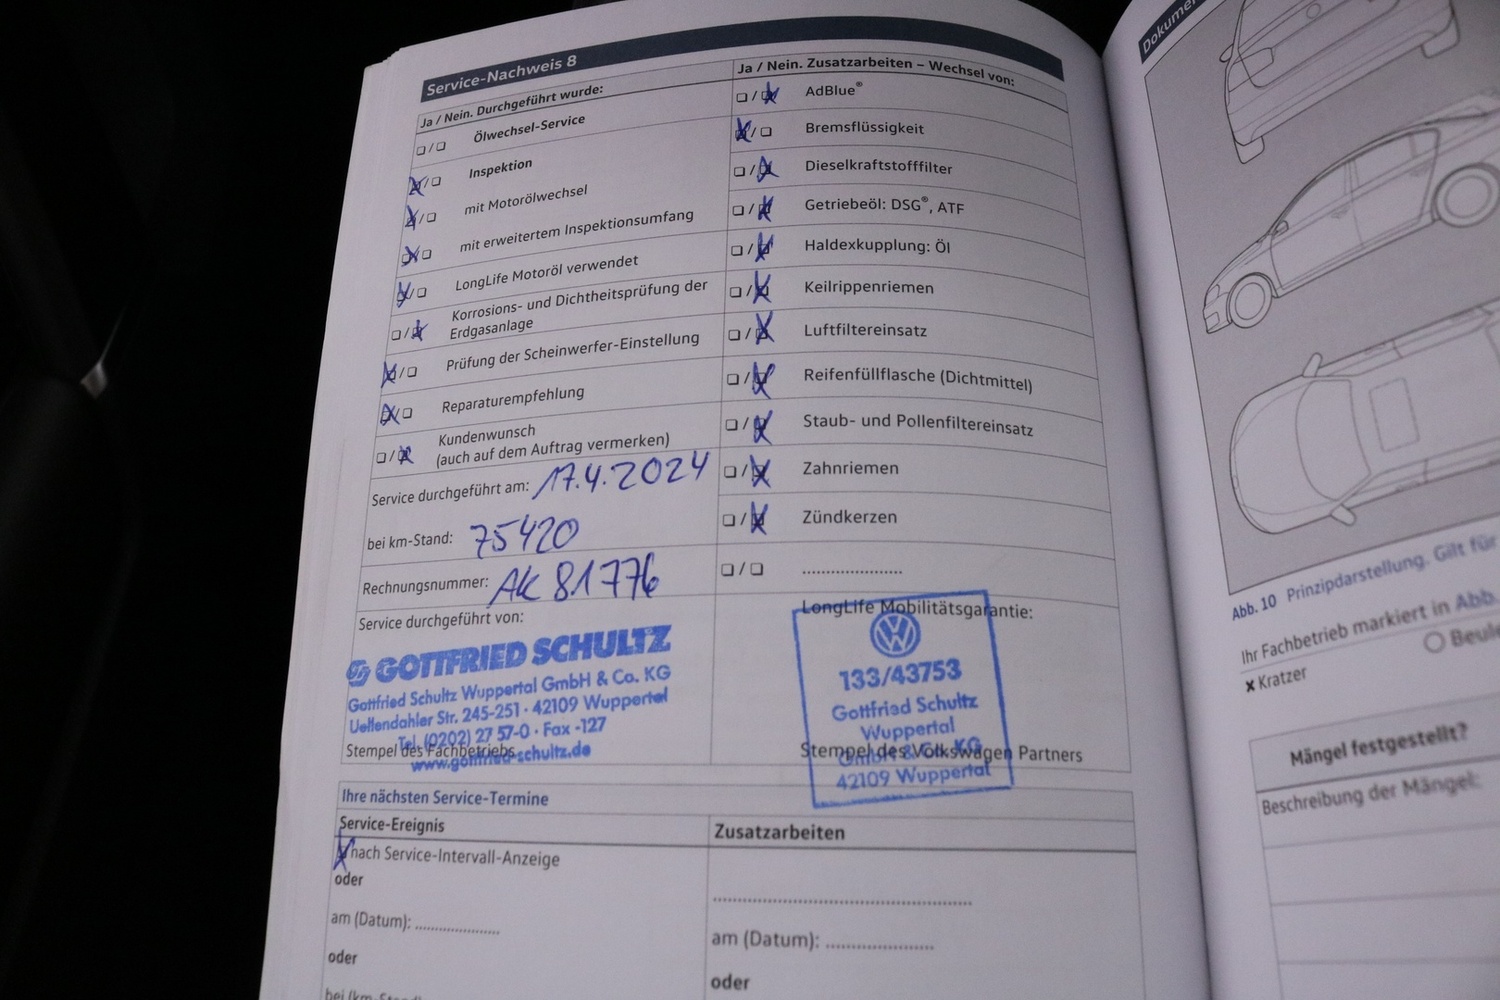 Service-Nachweis 8
Ja / Nein. Durchgeführt wurde:
Ölwechsel-Service
Inspektion
mit Motorölwechsel
mit erweitertem Inspektionsumfang
LongLife Motoröl verwendet
Korrosions- und Dichtheitsprüfung der
Erdgasanlage
Prüfung der Scheinwerfer-Einstellung
Reparaturempfehlung
Kundenwunsch
(auch auf dem Auftrag vermerken)
Service durchgeführt am: 17.4.2024
bei km-Stand: 75420
Rechnungsnummer: AK 81776
Service durchgeführt von:
GOTTFRIED SCHULTZ
Gottfried Schultz Wuppertal GmbH & Co. KG
Uellendahler Str. 245-251 · 42109 Wuppertal
Tel. (0202) 27 57-0 · Fax -127
Stempel des Fachbetriebs
www.gottfried-schultz.de
Ja / Nein. Zusatzarbeiten – Wechsel von:
AdBlue®
Bremsflüssigkeit
Dieselkraftstofffilter
Getriebeöl: DSG®, ATF
Haldexkupplung: Öl
Keilrippenriemen
Luftfiltereinsatz
Reifenfüllflasche (Dichtmittel)
Staub- und Pollenfiltereinsatz
Zahnriemen
Zündkerzen
....................
LongLife Mobilitätsgarantie:
VW
133/43753
Gottfried Schultz
Wuppertal
GmbH & Co. KG
Stempel des Volkswagen Partners
42109 Wuppertal
Ihre nächsten Service-Termine
Service-Ereignis
nach Service-Intervall-Anzeige
oder
am (Datum): ................
oder
bei (km-Stand)
Zusatzarbeiten
........................................
am (Datum): ....................
oder
Abb. 10 Prinzipdarstellung. Gilt für
Ihr Fachbetrieb markiert in Abb.
x Kratzer
Mängel festgestellt?
Beschreibung der Mängel: